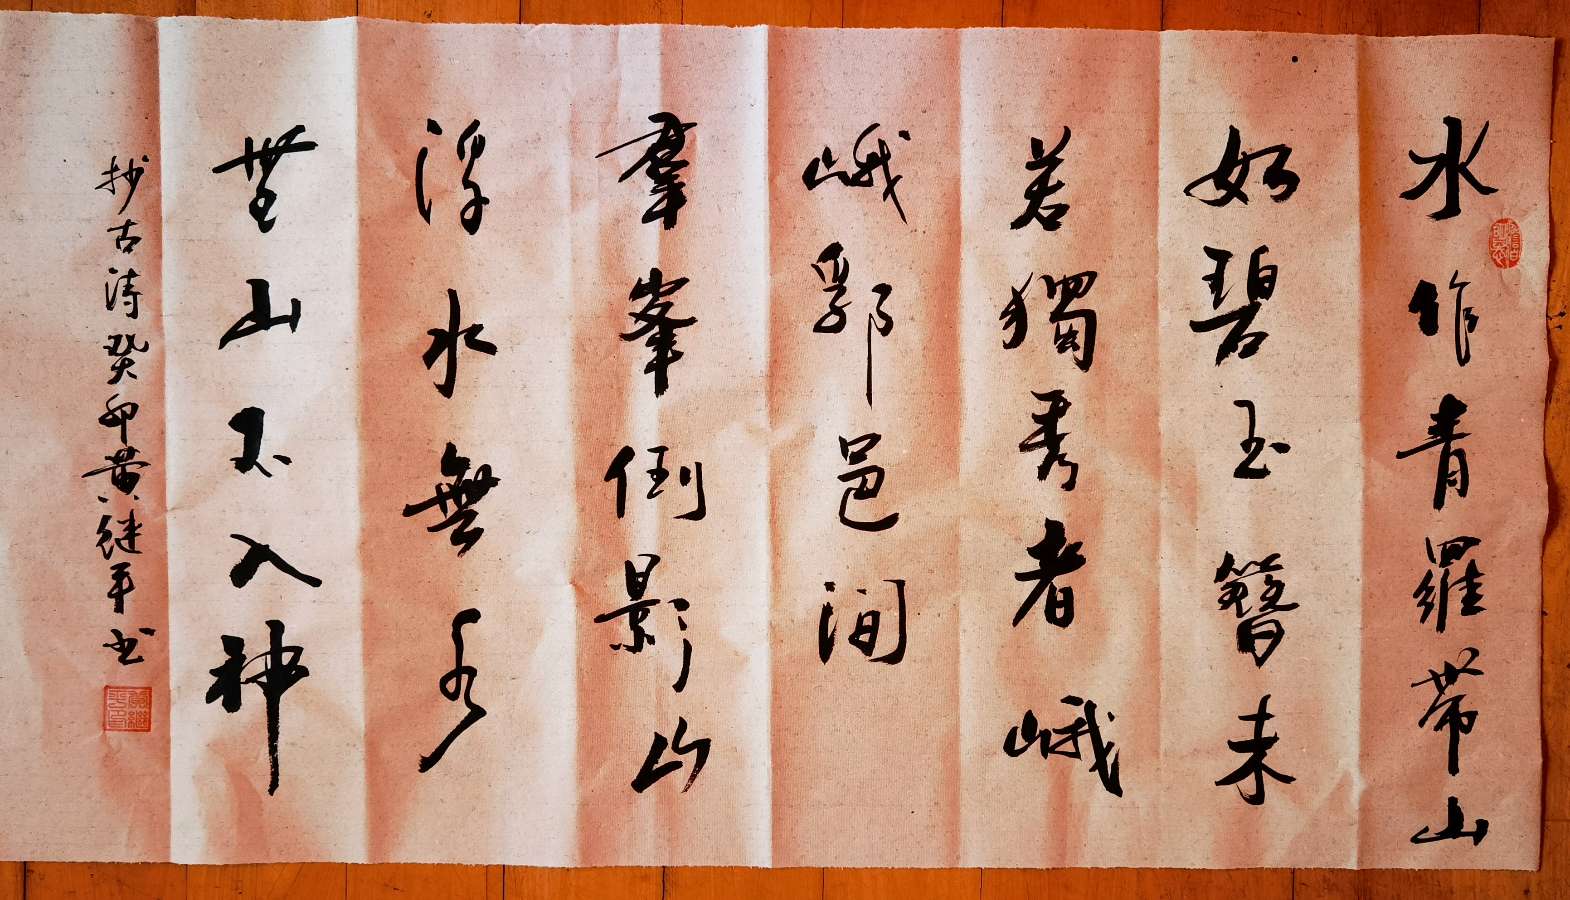 水作青羅帶山
如碧玉簪未
若獨秀者峨
峨郭邑间
羣峯倒影山
浮水無水
無山不入神
抄古诗癸卯黄继平书